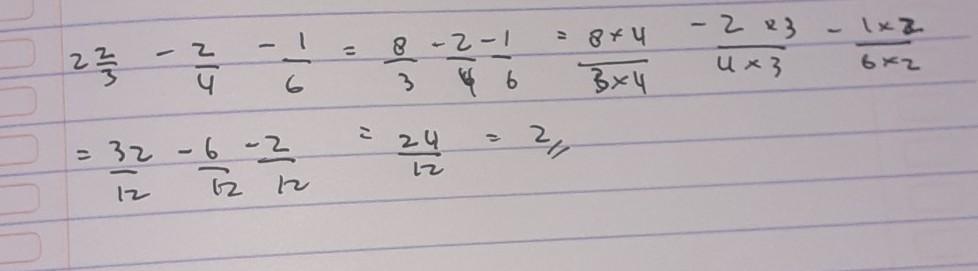 2 2/3 - 2/4 - 1/6 = 8/3 - 2/4 - 1/6 = 8×4/3×4 - 2×3/4×3 - 1×2/6×2
= 32/12 - 6/12 - 2/12 = 24/12 = 2//